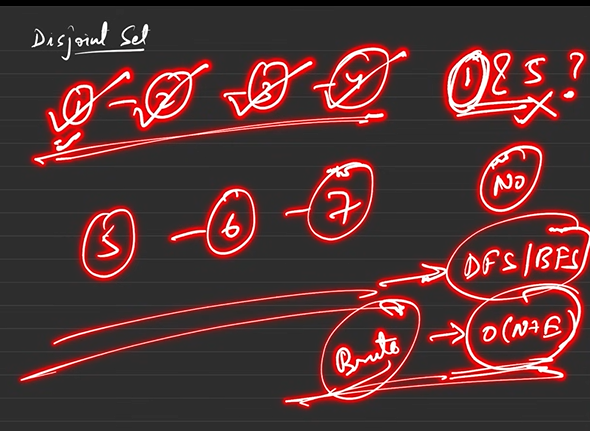 Disjoint Set
1 - 2 3 - 4
1 & 5 ?
No
5 - 6 - 7
DFS/BFS
Brute → O(N+E)